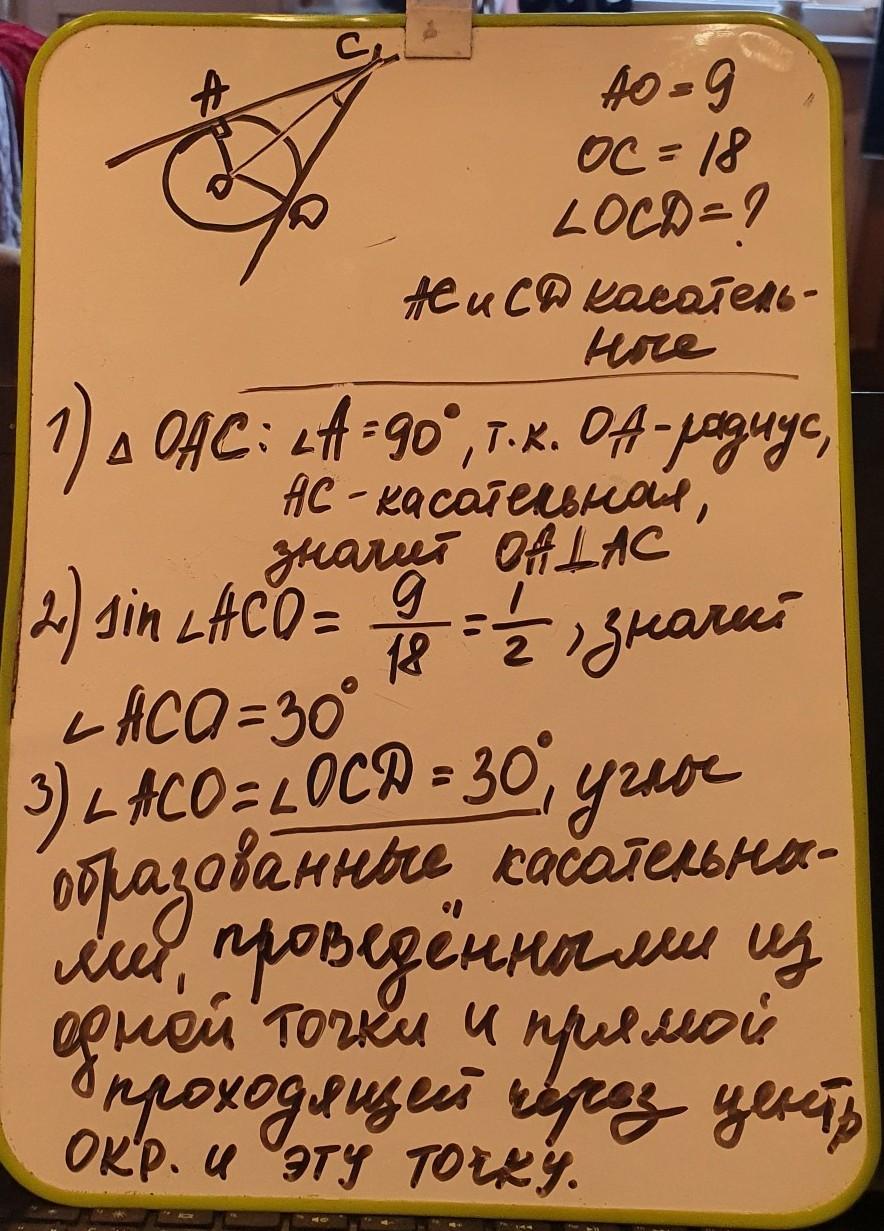 C
A
O
D
AO = 9
OC = 18
∠OCD = ?
AC и CD касатель-
ные
1) △ OAC: ∠A = 90°, т.к. OA - радиус,
AC - касательная,
значит OA⊥AC
2) sin ∠ACO = 9/18 = 1/2, значит
∠ACO = 30°
3) ∠ACO = ∠OCD = 30°, углы
образованные касательны-
ми, проведёнными из
одной точки и прямой
проходящей через центр
окр. и эту точку.